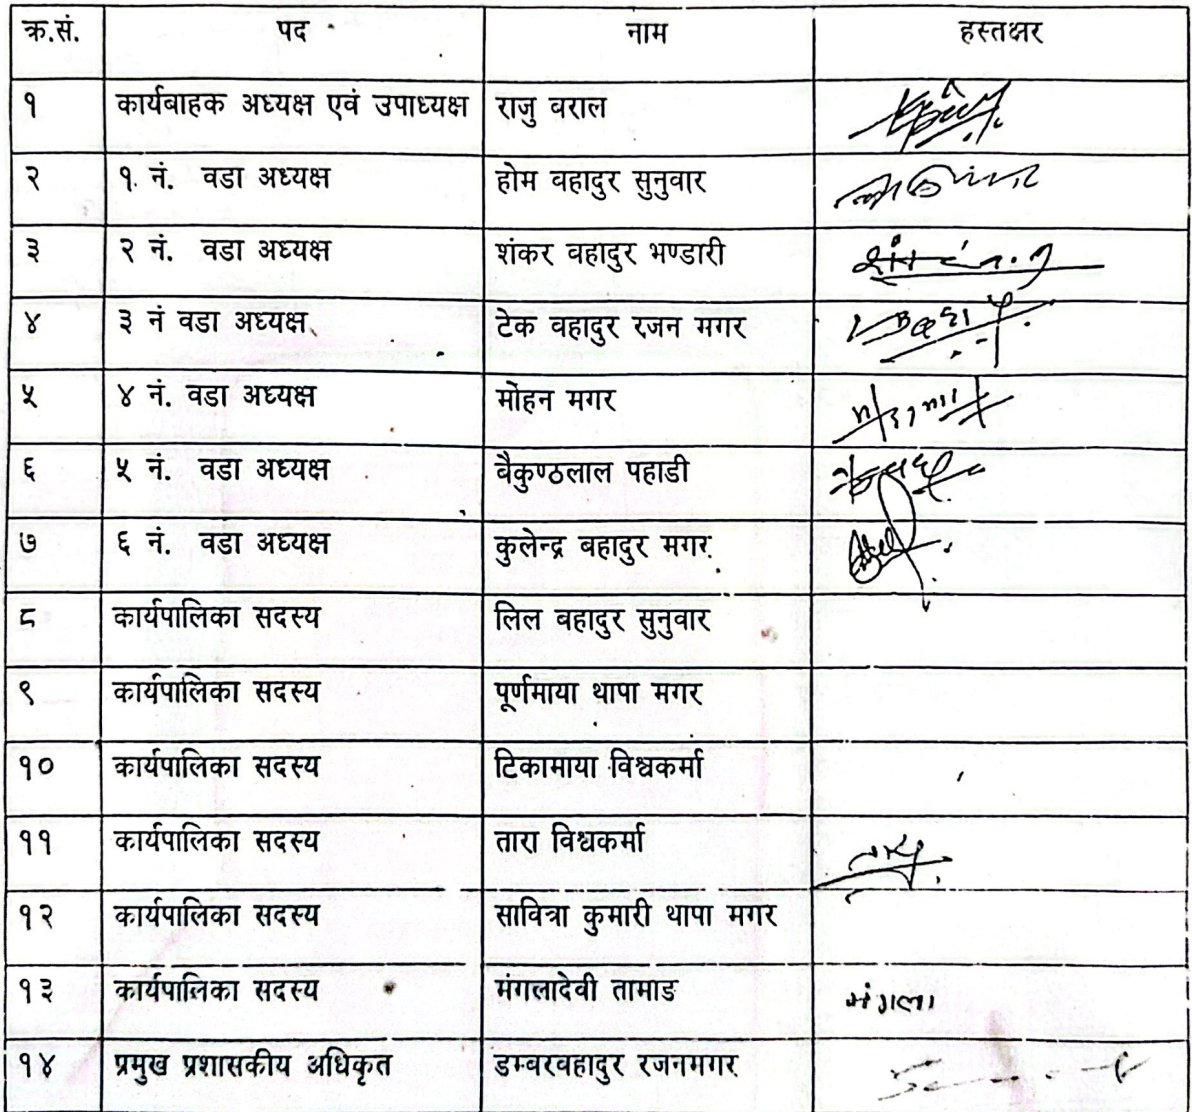 क्र.सं. पद नाम हस्तक्षर
१ कार्यबाहक अध्यक्ष एवं उपाध्यक्ष राजु वराल
२ १ नं. वडा अध्यक्ष होम वहादुर सुनुवार
३ २ नं. वडा अध्यक्ष शंकर वहादुर भण्डारी
४ ३ नं वडा अध्यक्ष टेक वहादुर रजन मगर
५ ४ नं. वडा अध्यक्ष मोहन मगर
६ ५ नं. वडा अध्यक्ष वैकुण्ठलाल पहाडी
७ ६ नं. वडा अध्यक्ष कुलेन्द्र बहादुर मगर
८ कार्यपालिका सदस्य लिल वहादुर सुनुवार
९ कार्यपालिका सदस्य पूर्णमाया थापा मगर
१० कार्यपालिका सदस्य टिकामाया विश्वकर्मा
११ कार्यपालिका सदस्य तारा विश्वकर्मा
१२ कार्यपालिका सदस्य सावित्रा कुमारी थापा मगर
१३ कार्यपालिका सदस्य मंगलादेवी तामाड मंगला
१४ प्रमुख प्रशासकीय अधिकृत डम्वरवहादुर रजनमगर